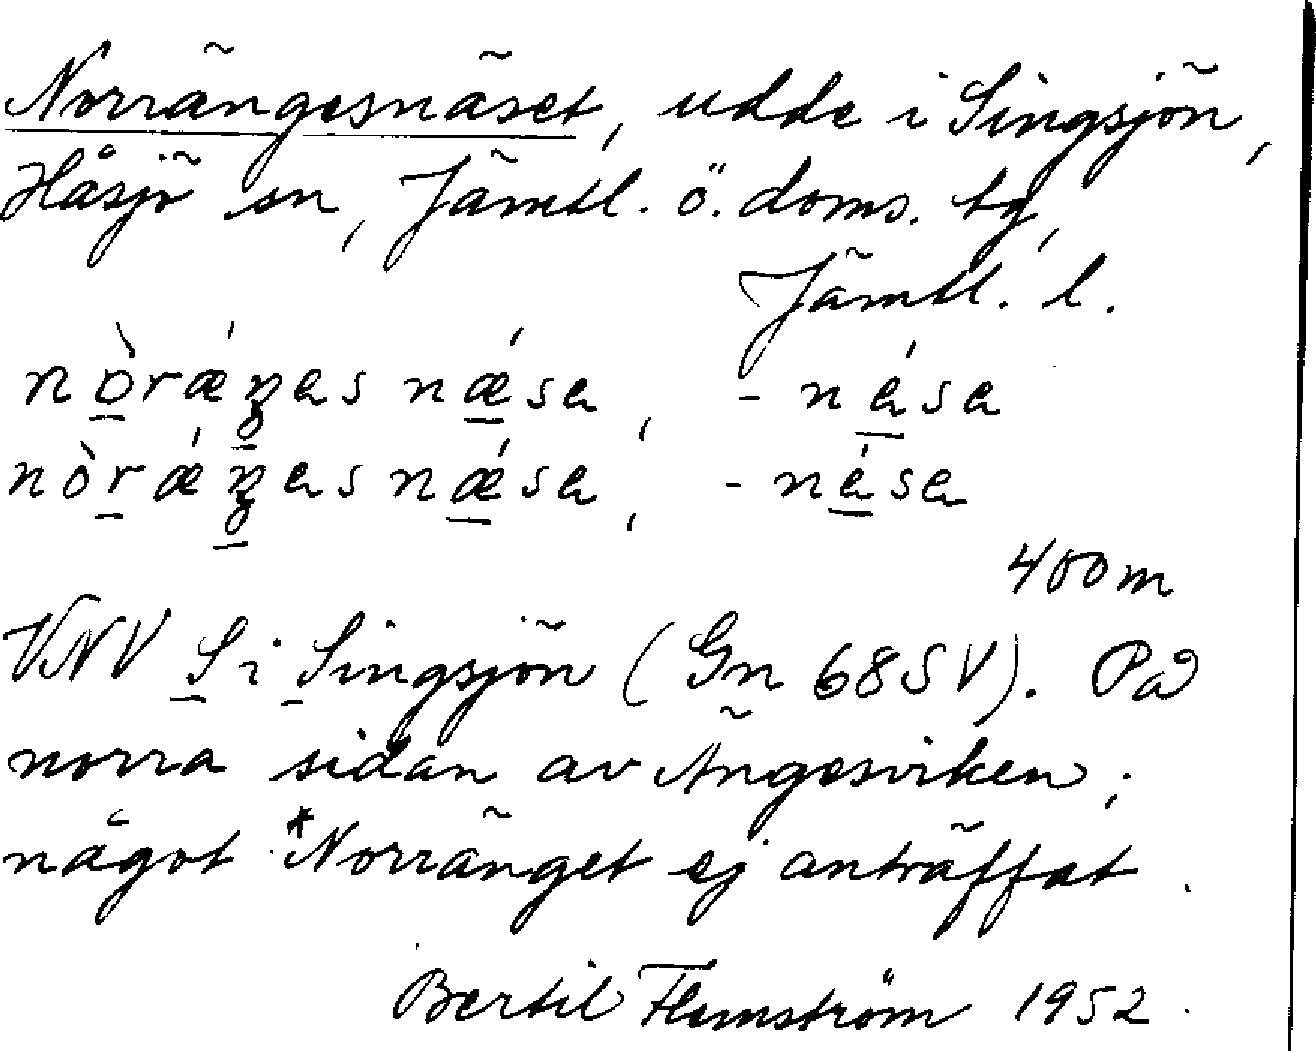 Norrängesnäset, udde i Singsjön,
Håsjö sn, Jämtl. ö. doms. tg,
Jämtl. l.
nòrǽŋesnǽse, -nése
nòrǽŋesnǽse, -nése
400 m
VNV S i Singsjön (Gn 68 SV). På
norra sidan av Ängesviken;
något *Norränget ej anträffat.
Bertil Flemström 1952.